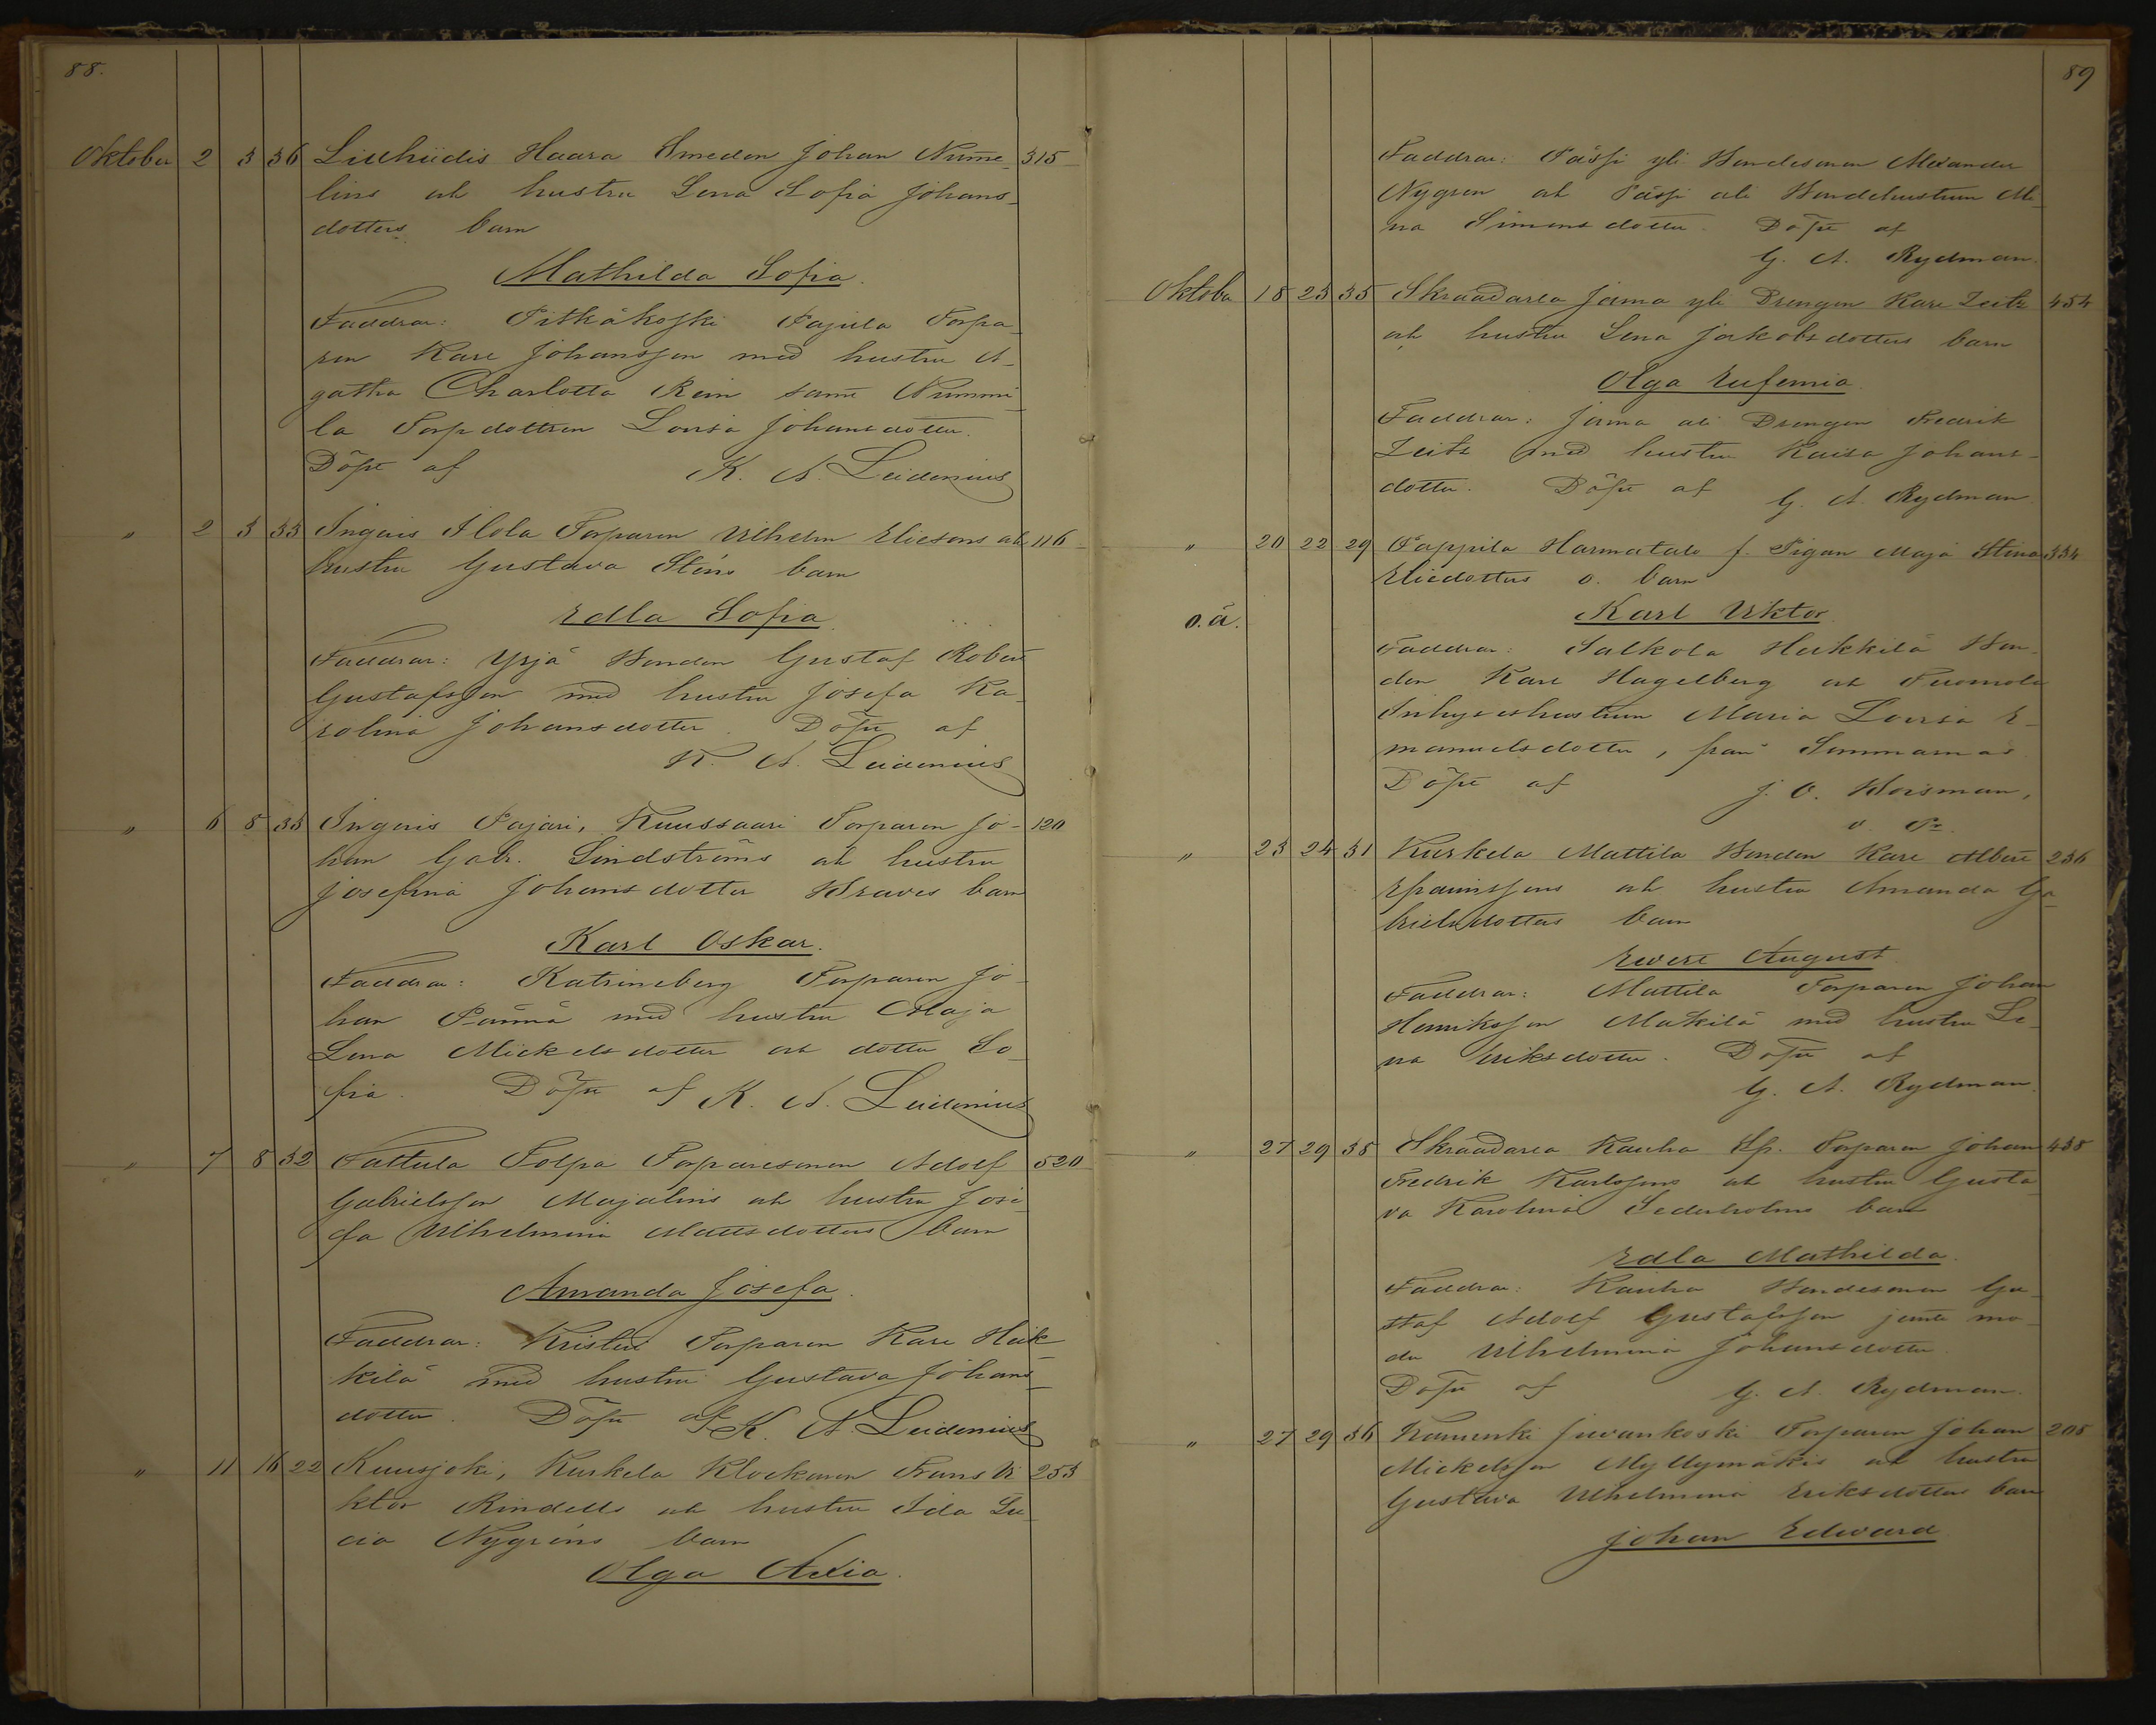 88.
Oktober 2 3 36 Liuhiidis Haara Smeden Johan Nume- 315
lins och hustru Lena Sofia Johans-
dotters barn
Mathilda Sofia.
Faddrar: Pitkäkoski Pajula Torpa-
ren Karl Johansson med hustru A-
gatha Charlotta Rein samt Nummi-
la Torpdottren Lovisa Johansdotter.
Döpt af K. A. Leidenius
" 2 3 33 Ingeris Alola Torparen Vilhelm Eliesons och 116
hustru Gustava Sténs barn
Edla Sofia
Faddrar: Yrjä Bonden Gustaf Robert
Gustafsson med hustru Josefa Ka-
rolina Johansdotter. Döpt af
K. A. Leidenius
" 6 8 33 Ingeris Pajari, Kuussaari Torparen Jo- 120
han Gabr. Lindströms och hustru
Josefina Johansdotter Kraves barn
Karl Oskar.
Faddrar: Katrineberg Torparen Jo-
han Pännä med hustru Maja
Lena Mickelsdotter och dotter So-
fia. Döpt af K. A. Leidenius
" 7 8 32 Tattula Tolpa Torparesonen Adolf 520
Gabrielsson Majalins och hustru Jose-
fa Vilhelmina Mattsdotters barn
Amanda Josefa.
Faddrar: Torparen Karl Heik-
kilä med hustru Gustava Johans-
dotter. Döpt af K. A. Leidenius
" 11 16 22 Kuusjoki, Kurkela Klockaren Frans Vi- 253
ktor Rindells och hustru Ida Lu-
cia Nygréns barn
Olga Axia.
89
Faddrar: Pässi yli Bondesonen Alexander
Nygren och Pässi ali Bondehustrun Mi-
na Simonsdotter. Döpt af
G. A. Rydman.
Oktober 18 23 35 Skräädarla Jarna yli Drengen Karl Zeitz 454
och hustru Lena Jakobsdotters barn
Olga Eufemia
Faddrar: Jarna ali Drengen Fredrik
Zeitz med hustru Kaisa Johans-
dotter. Döpt af G. A. Rydman
" 20 22 29 Pappila Harmatalo f. Pigan Maja Stina 334
Eliedotters o. barn
o.ä. Karl Viktor.
Faddrar: Salkola Heikkilä Bon-
den Karl Hagelberg och Tuomola
Inhyseshustrun Maria Lovisa E-
manuelsdotter, från Sommarnäs
Döpt af J. O. Roisman,
v. Pr.
" 23 24 31 Kurkela Mattila Bonden Karl Albert 236
Efraimssons och hustru Amanda Ga-
brielsdotters barn
Evert August.
Faddrar: Mattila Torparen Johan
Henriksson Mäkilä med hustru Le-
na Eriksdotter. Döpt af
G. A. Rydman.
" 27 29 38 Skräädarla Rauha Sp. Torparen Johan 438
Fredrik Karlssons och hustru Gusta-
va Karolina Sederholms barn
Edla Mathilda.
Faddrar: Rauha Bondesonen Gu-
staf Adolf Gustafsson jemte mo-
der Vilhelmina Johansdotter
Döpt af G. A. Rydman.
" 27 29 36 Juvankoski Torparen Johan 208
Mickelsson Myllymäkis och hustru
Gustava Vilhelmina Eriksdotters barn
Johan Edward